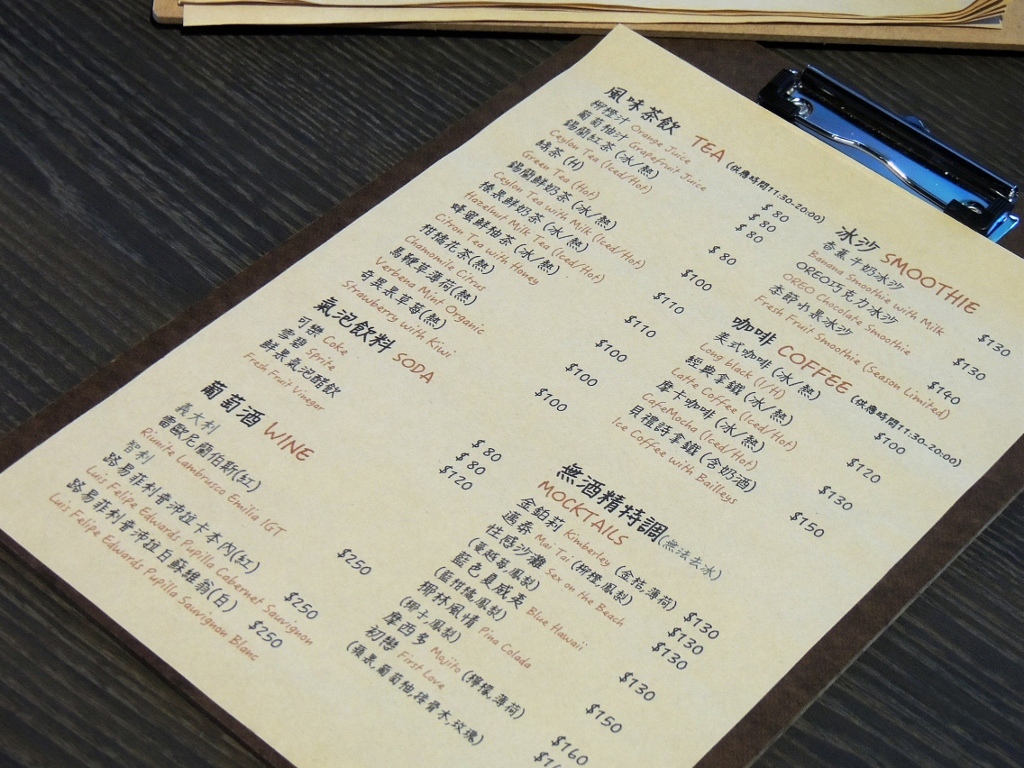 風味茶飲 TEA (供應時間11:30-20:00)
柳橙汁 Orange Juice $80
葡萄柚汁 Grapefruit Juice $80
錫蘭紅茶 (冰/熱) $80
Ceylon Tea (Iced/Hot)
綠茶 (H) $80
Green Tea (Hot)
錫蘭鮮奶茶 (冰/熱) $100
Ceylon Tea with Milk (Iced/Hot)
榛果鮮奶茶 (冰/熱) $110
Hazelnut Milk Tea (Iced/Hot)
蜂蜜鮮柚茶 (冰/熱) $110
Citron Tea with Honey
柑橘花茶(熱) $100
Chamomile Citrus
馬鞭草薄荷(熱) $100
Verbena Mint Organic
奇異果草莓(熱) $100
Strawberry with Kiwi
氣泡飲料 SODA
可樂 Coke $80
雪碧 Sprite $80
鮮果氣泡醋飲 $120
Fresh Fruit Vinegar
葡萄酒 WINE
義大利
雷歐尼蘭伯斯(紅) $250
Riunite Lambrusco Emilia IGT
智利
路易菲利普沛拉卡本內(紅) $250
Luis Felipe Edwards Pupilla Cabernet Sauvignon
路易菲利普沛拉白蘇維翁(白) $250
Luis Felipe Edwards Pupilla Sauvignon Blanc
冰沙 SMOOTHIE
香蕉牛奶冰沙 $130
Banana Smoothie with Milk
OREO巧克力冰沙 $130
OREO Chocolate Smoothie
季節水果冰沙 $140
Fresh Fruit Smoothie (Season Limited)
咖啡 COFFEE (供應時間11:30-20:00)
美式咖啡 (冰/熱) $100
Long black (I/H)
經典拿鐵 (冰/熱) $120
Latte Coffee (Iced/Hot)
摩卡咖啡 (冰/熱) $130
CafeMocha (Iced/Hot)
貝禮詩拿鐵 (含奶酒) $150
Ice Coffee with Baileys
無酒精特調(無法去冰)
MOCKTAILS
金鉑莉 Kimberley (金桔,薄荷) $130
邁泰 Mai Tai (柳橙,鳳梨) $130
性感沙灘 Sex on the Beach $130
(蔓越莓,鳳梨)
藍色夏威夷 Blue Hawaii $130
(藍柑橘,鳳梨)
椰林風情 Pina Colada $150
(椰子,鳳梨)
摩西多 Mojito (檸檬,薄荷) $160
初戀 First Love